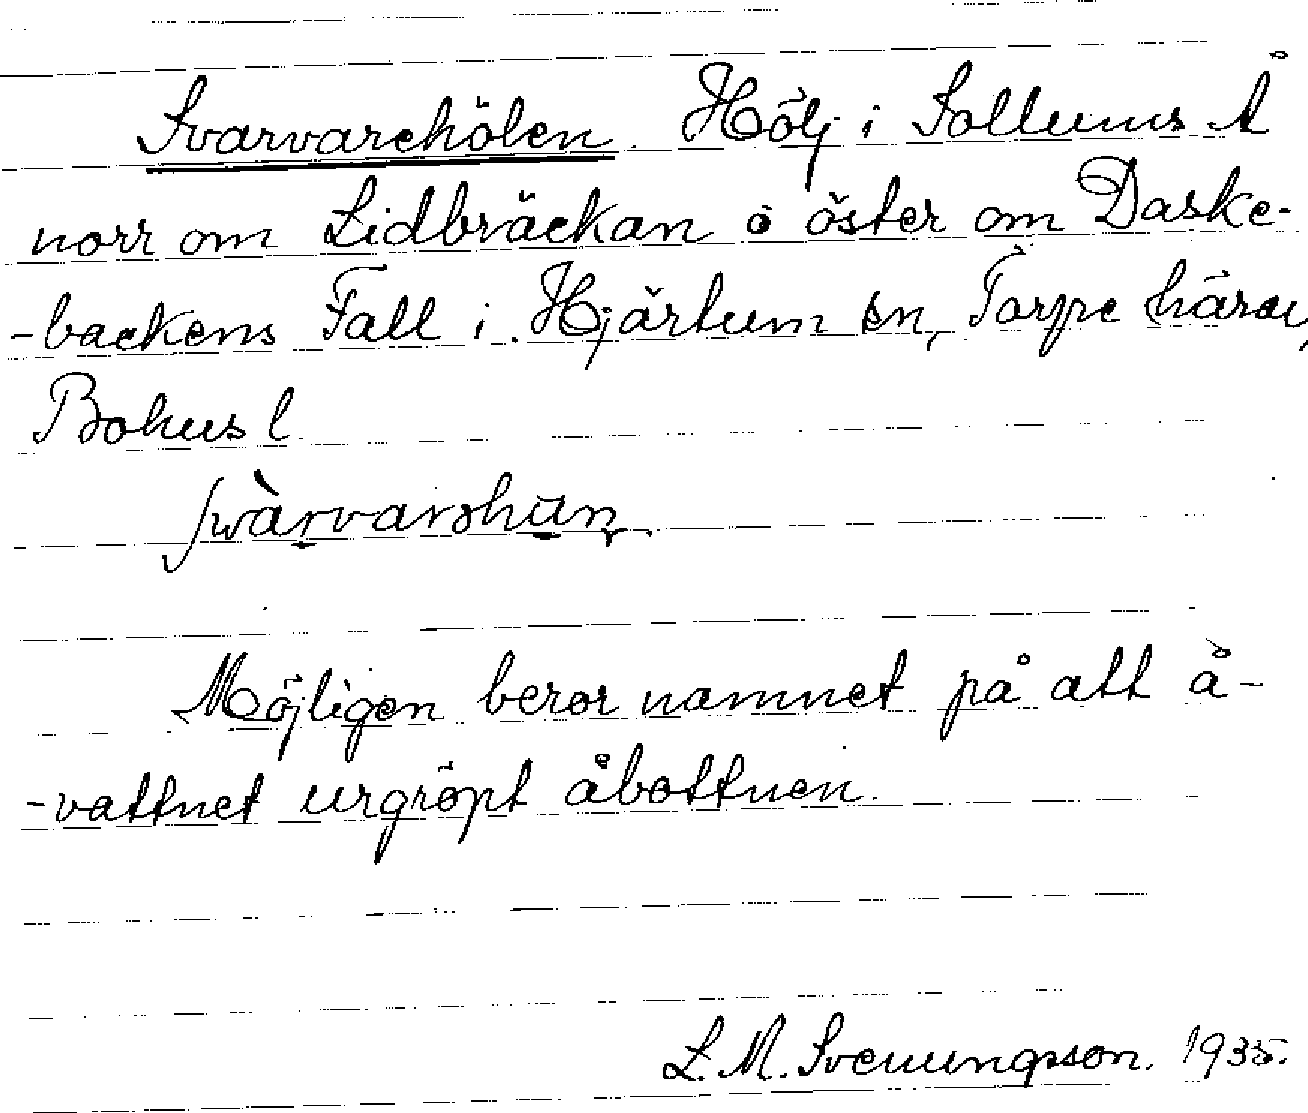 Svarvarehölen. Hölj i Sollums Å
norr om Lidbräckan o öster om Daske-
-backens Fall i Hjärtum sn, Torpe härad,
Bohusl
Möjligen beror namnet på att å-
-vattnet urgröpt åbottnen.
L. M. Svenungsson. 1935.